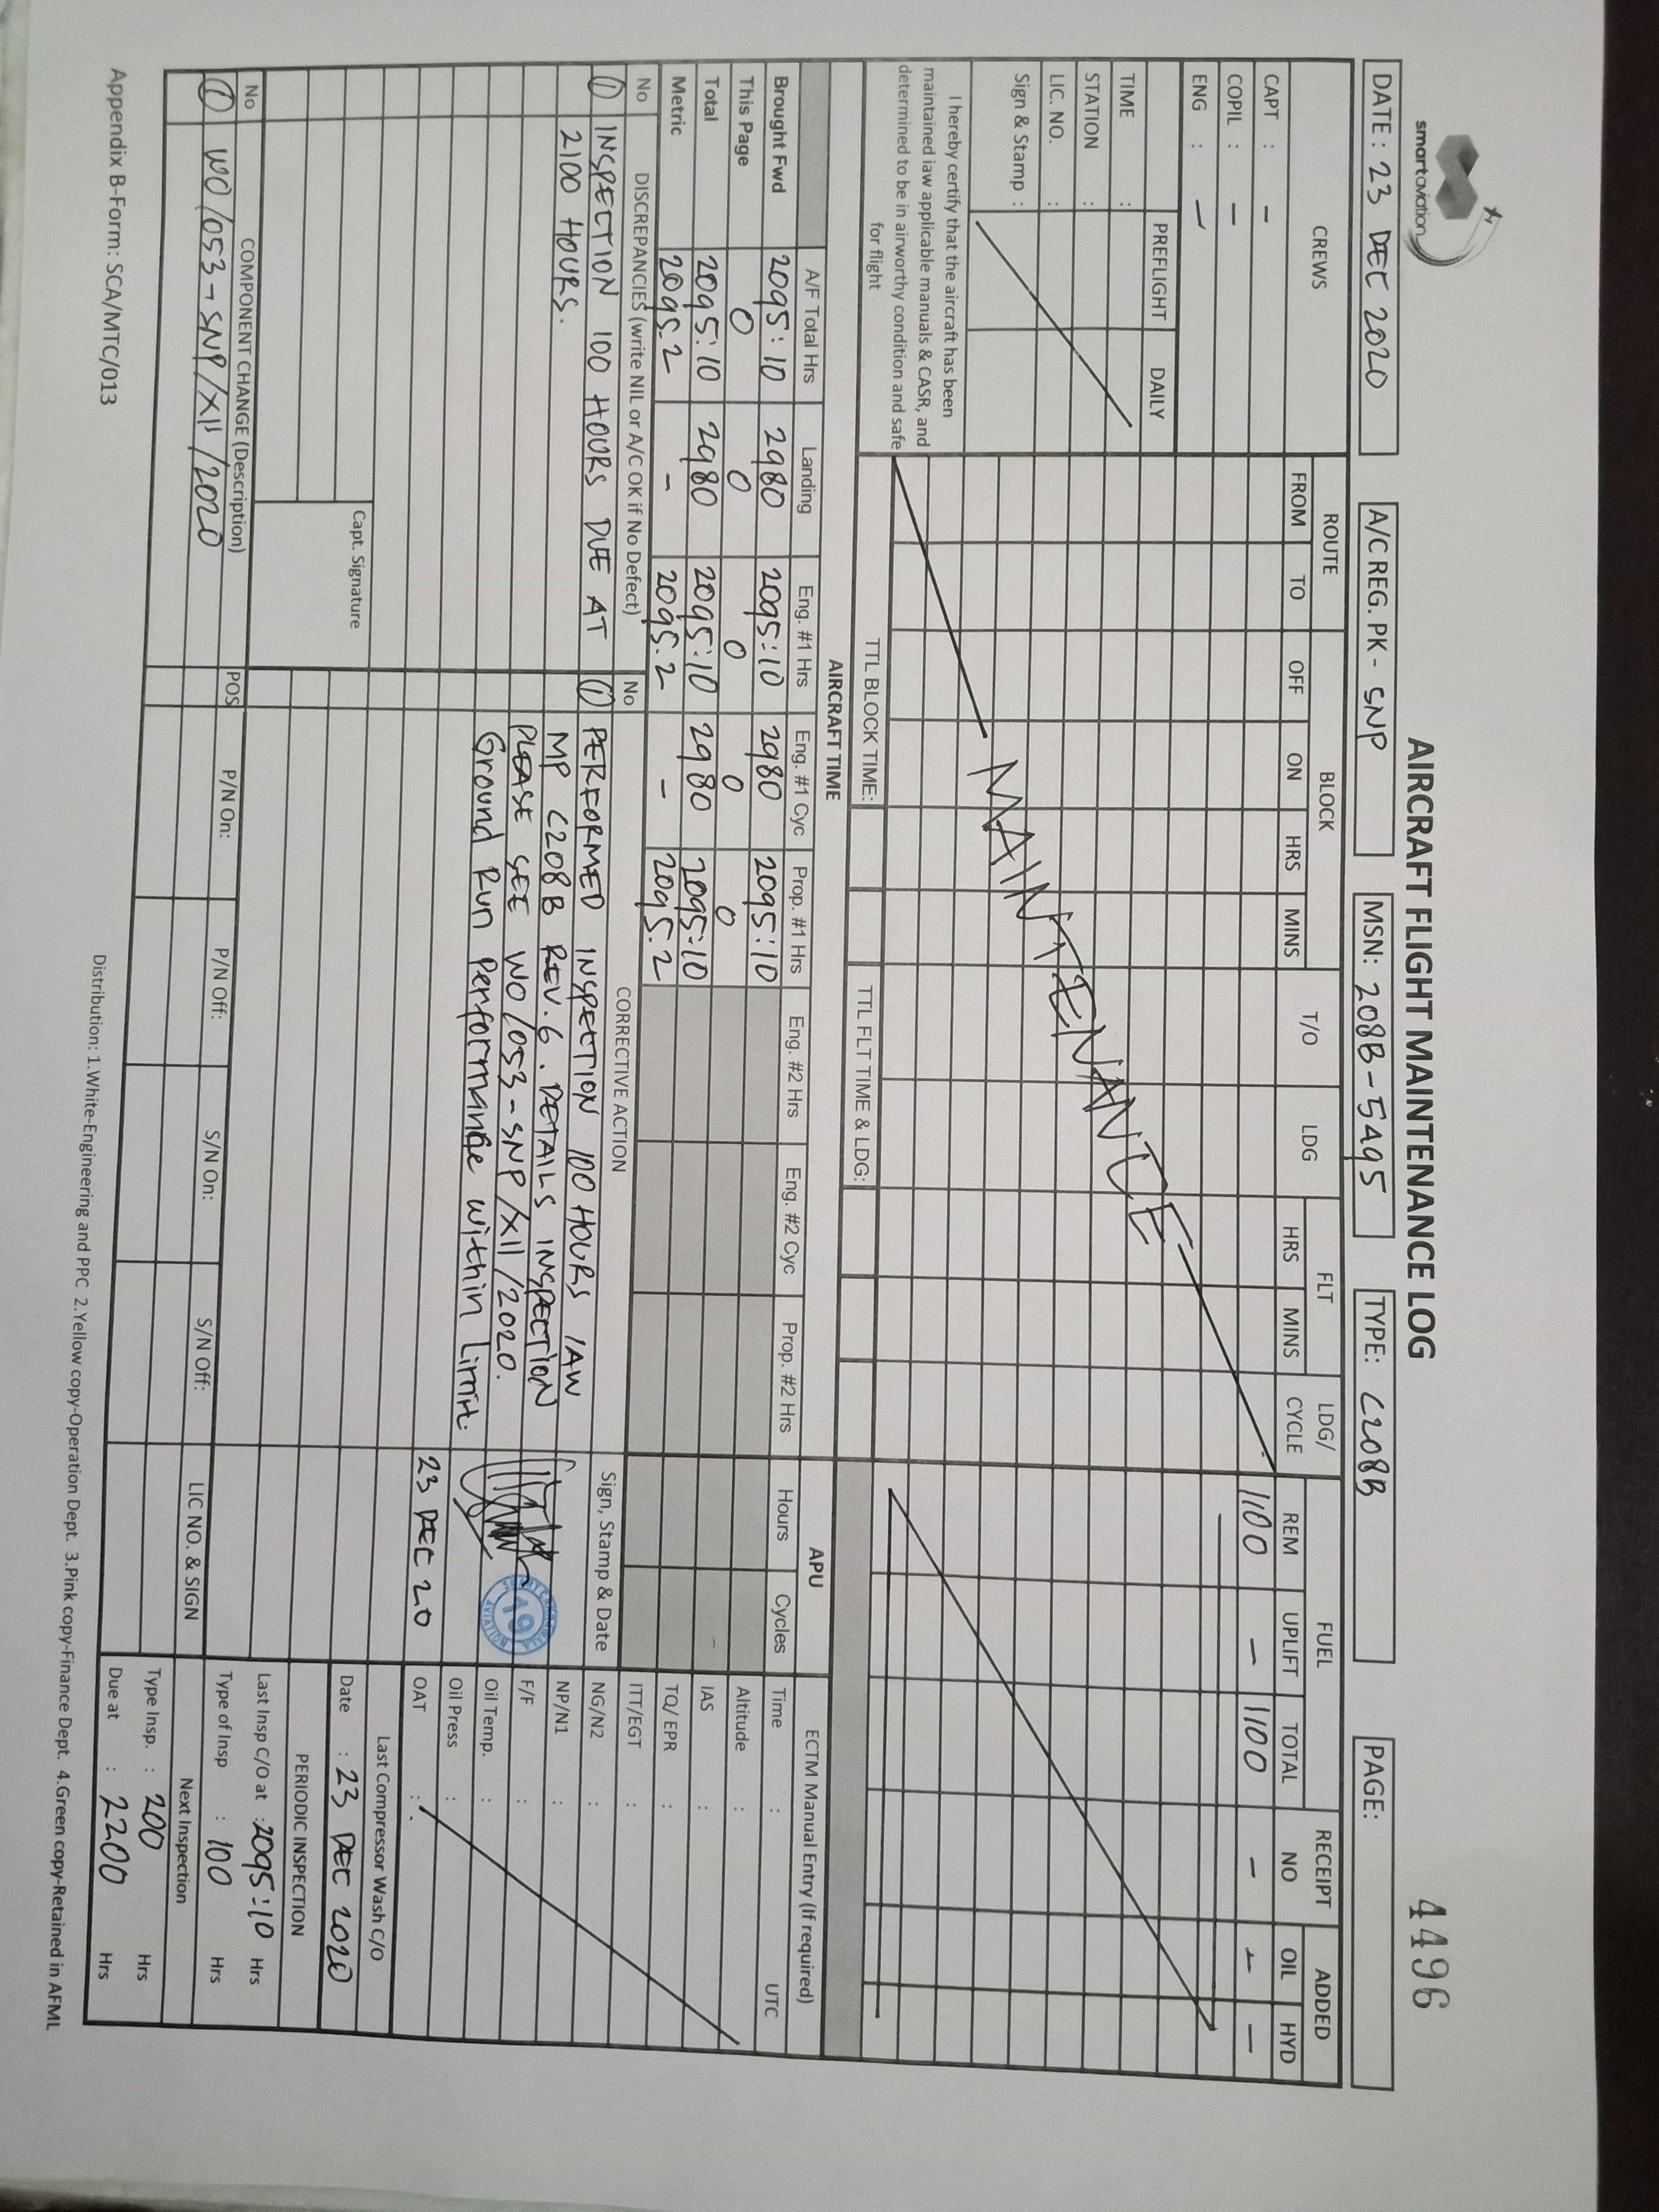 smartaviation
AIRCRAFT FLIGHT MAINTENANCE LOG
4496
DATE : 23 DEC 2020
A/C REG. PK - SNP
MSN: 208B-5495
TYPE: C208B
PAGE:
CREWS
ROUTE BLOCK T/O LDG FLT LDG/ CYCLE FUEL RECEIPT ADDED
FROM TO OFF ON HRS MINS HRS MINS REM UPLIFT TOTAL NO OIL HYD
CAPT : -
1100 - 1100 - - -
COPIL : -
ENG : -
PREFLIGHT DAILY
TIME :
STATION :
LIC. NO. :
Sign & Stamp :
MAINTENANCE
I hereby certify that the aircraft has been
maintained iaw applicable manuals & CASR, and
determined to be in airworthy condition and safe
for flight
TTL BLOCK TIME: TTL FLT TIME & LDG:
AIRCRAFT TIME APU ECTM Manual Entry (If required)
A/F Total Hrs Landing Eng. #1 Hrs Eng. #1 Cyc Prop. #1 Hrs Eng. #2 Hrs Eng. #2 Cyc Prop. #2 Hrs Hours Cycles
Brought Fwd 2095:10 2980 2095:10 2980 2095:10
This Page 0 0 0 0 0
Total 2095:10 2980 2095:10 2980 2095:10
Metric 2095.2 - 2095.2 - 2095.2
Time : UTC
Altitude :
IAS :
TQ/ EPR :
ITT/EGT :
NG/N2 :
NP/N1 :
F/F :
Oil Temp. :
Oil Press :
OAT :
No DISCREPANCIES (write NIL or A/C OK if No Defect)
1 INSPECTION 100 HOURS DUE AT
2100 HOURS.
Capt. Signature
No CORRECTIVE ACTION
1 PERFORMED INSPECTION 100 HOURS IAW
MP C208B REV.6. DETAILS INSPECTION
PLEASE SEE WO/053-SNP/XII/2020.
Ground Run Performance within Limit.
Sign, Stamp & Date
19
AVIATION
23 DEC 20
Last Compressor Wash C/O
Date : 23 DEC 2020
PERIODIC INSPECTION
Last Insp C/O at : 2095:10 Hrs
Type of Insp : 100 Hrs
Next Inspection
Type Insp. : 200 Hrs
Due at : 2200 Hrs
No COMPONENT CHANGE (Description) POS P/N On: P/N Off: S/N On: S/N Off: LIC NO. & SIGN
1 WO/053-SNP/XII/2020
Appendix B-Form: SCA/MTC/013
Distribution: 1.White-Engineering and PPC 2.Yellow copy-Operation Dept. 3.Pink copy-Finance Dept. 4.Green copy-Retained in AFML